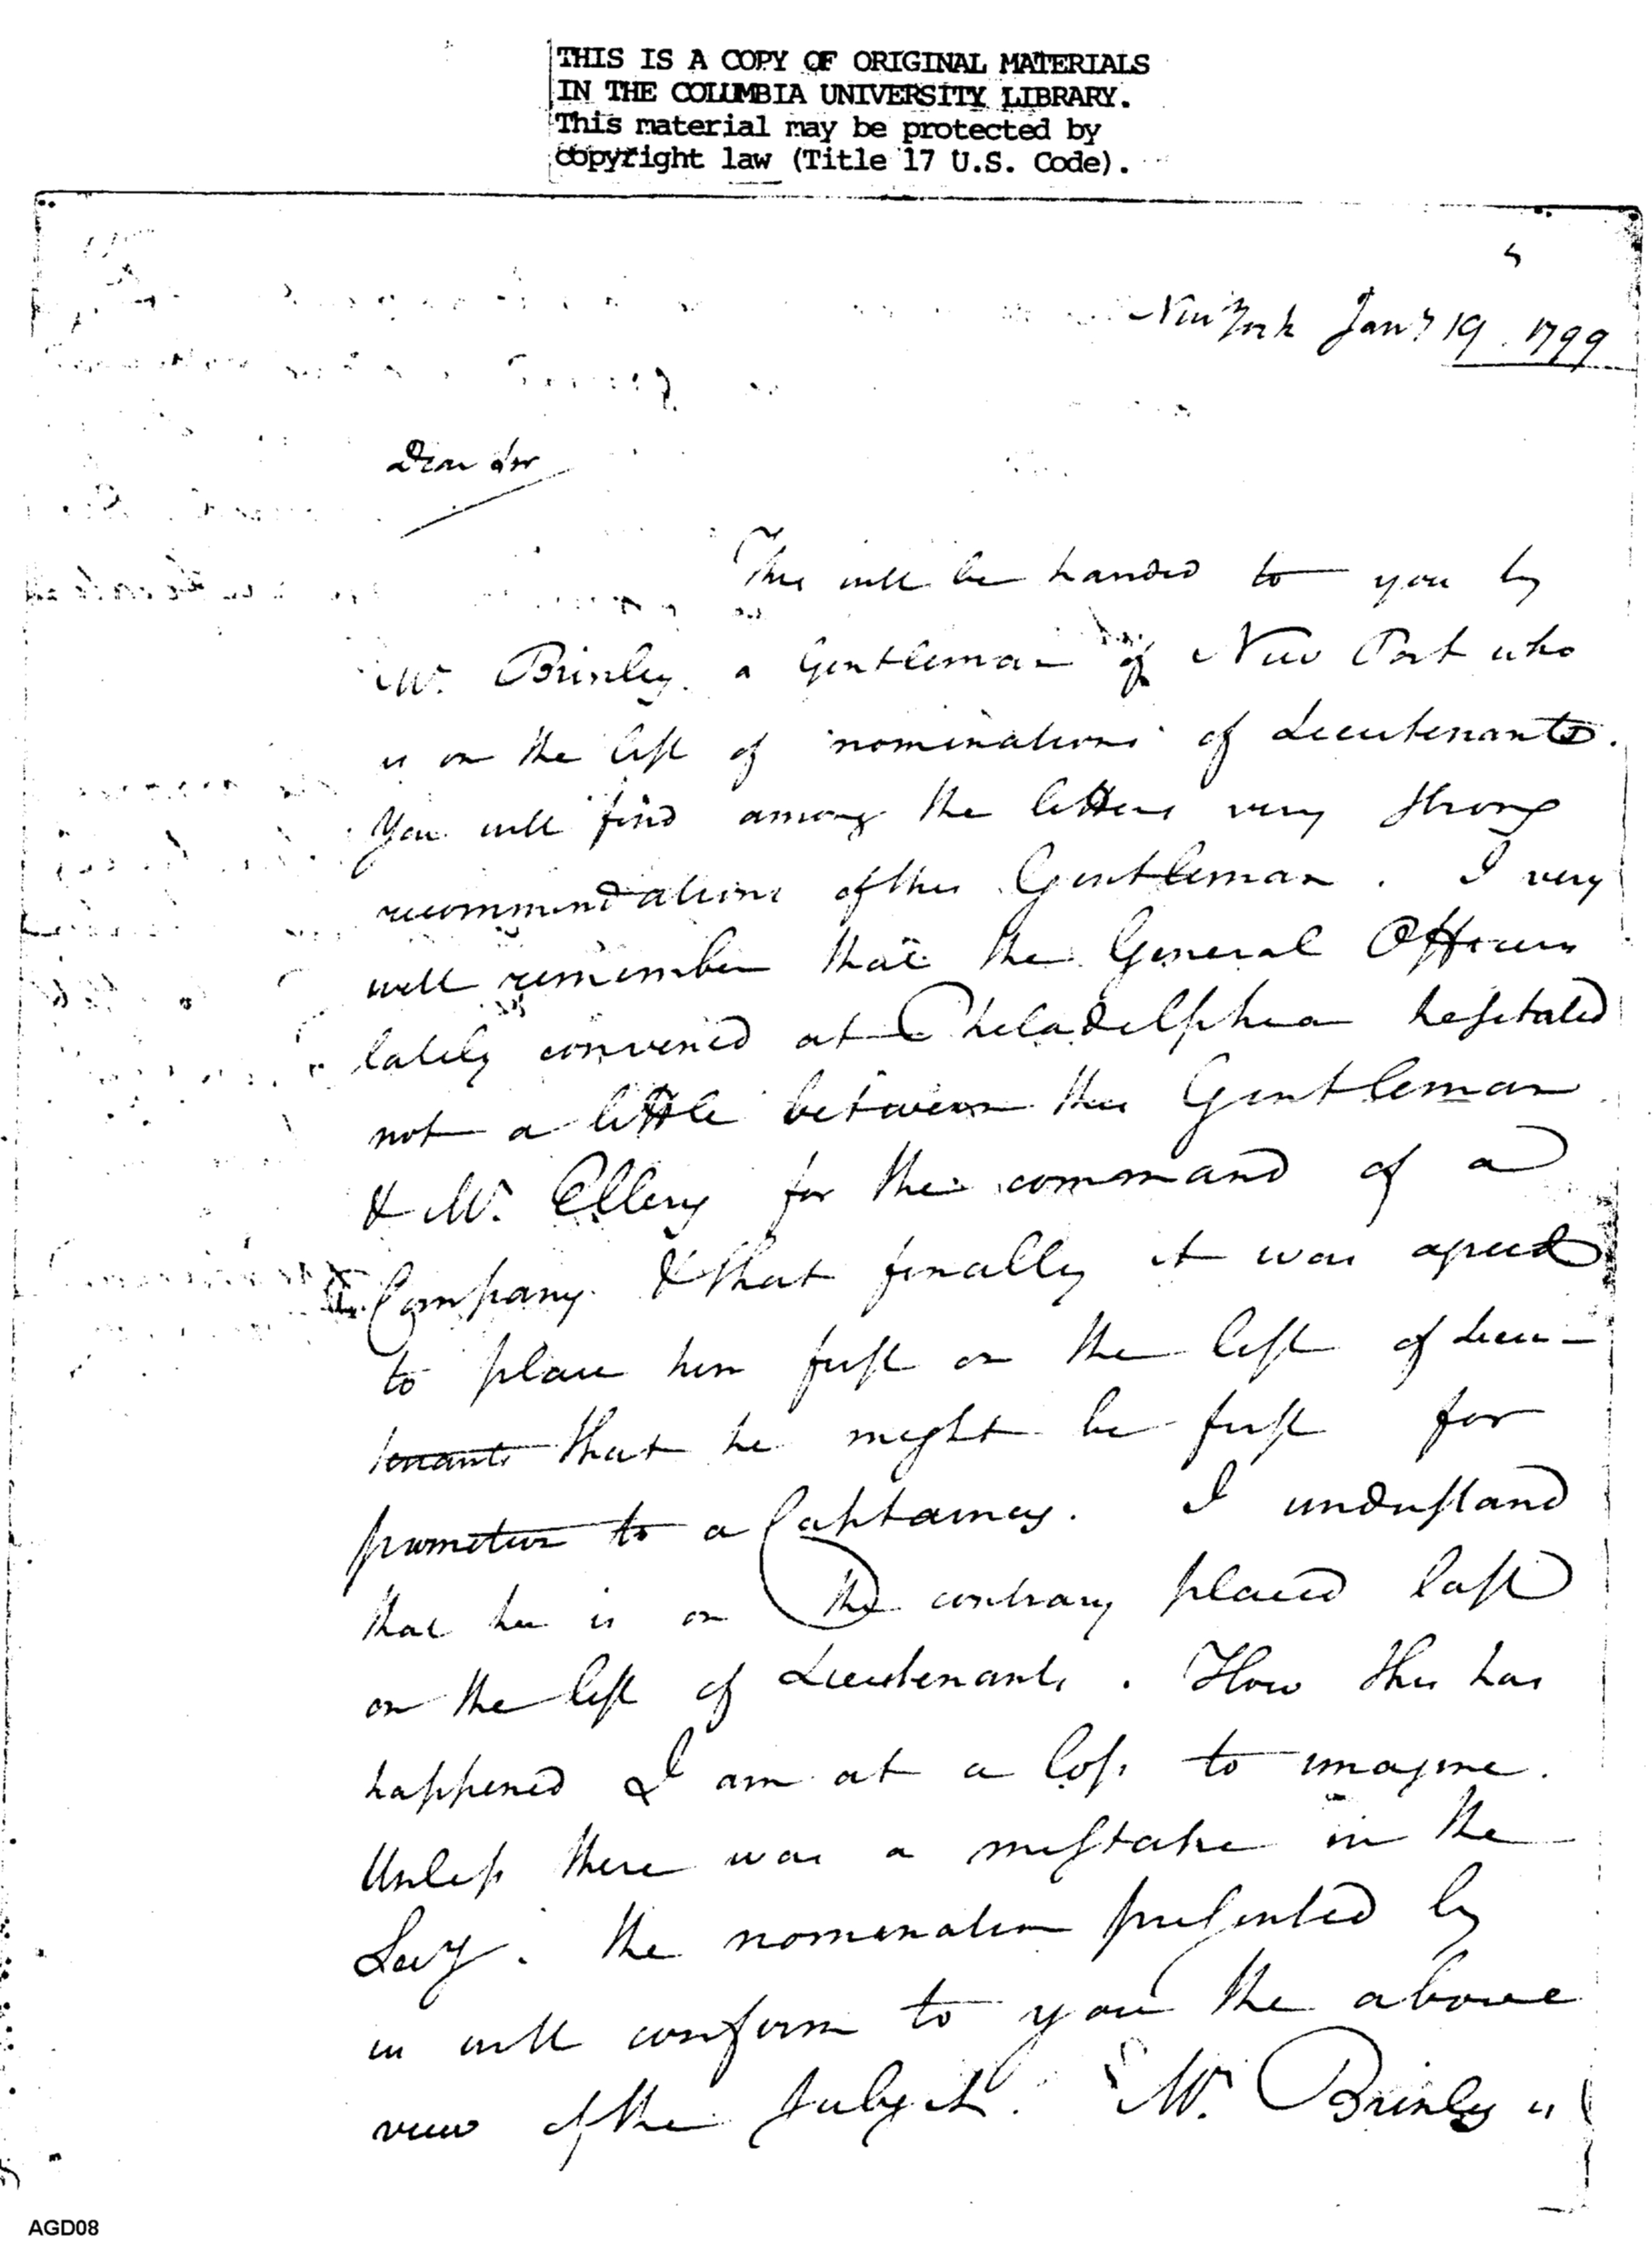 THIS IS A COPY OF ORIGINAL MATERIALS
IN THE COLUMBIA UNIVERSITY LIBRARY.
This material may be protected by
copyright law (Title 17 U.S. Code).
New York Jany 19. 1799
Dear Sir
This will be handed to you by
Mr. Brinley a Gentleman of New Port who
is on the list of nominations of Lieutenants.
You will find among the letters very strong
recommendations of this Gentleman. I very
well remember that the General Officers
lately convened at Philadelphia hesitated
not a little between this Gentleman
& Mr. Ellery for the command of a
Company & that finally it was agreed
to place him first on the list of Lieu-
tenants that he might be first for
promotion to a Captaincy. I understand
that he is on the contrary placed last
on the list of Lieutenants. How this has
happened I am at a loss to imagine.
Unless there was a mistake in the
the nomination presented by
us will confirm to you the above
view of the subject. Mr. Brinley is
AGD08